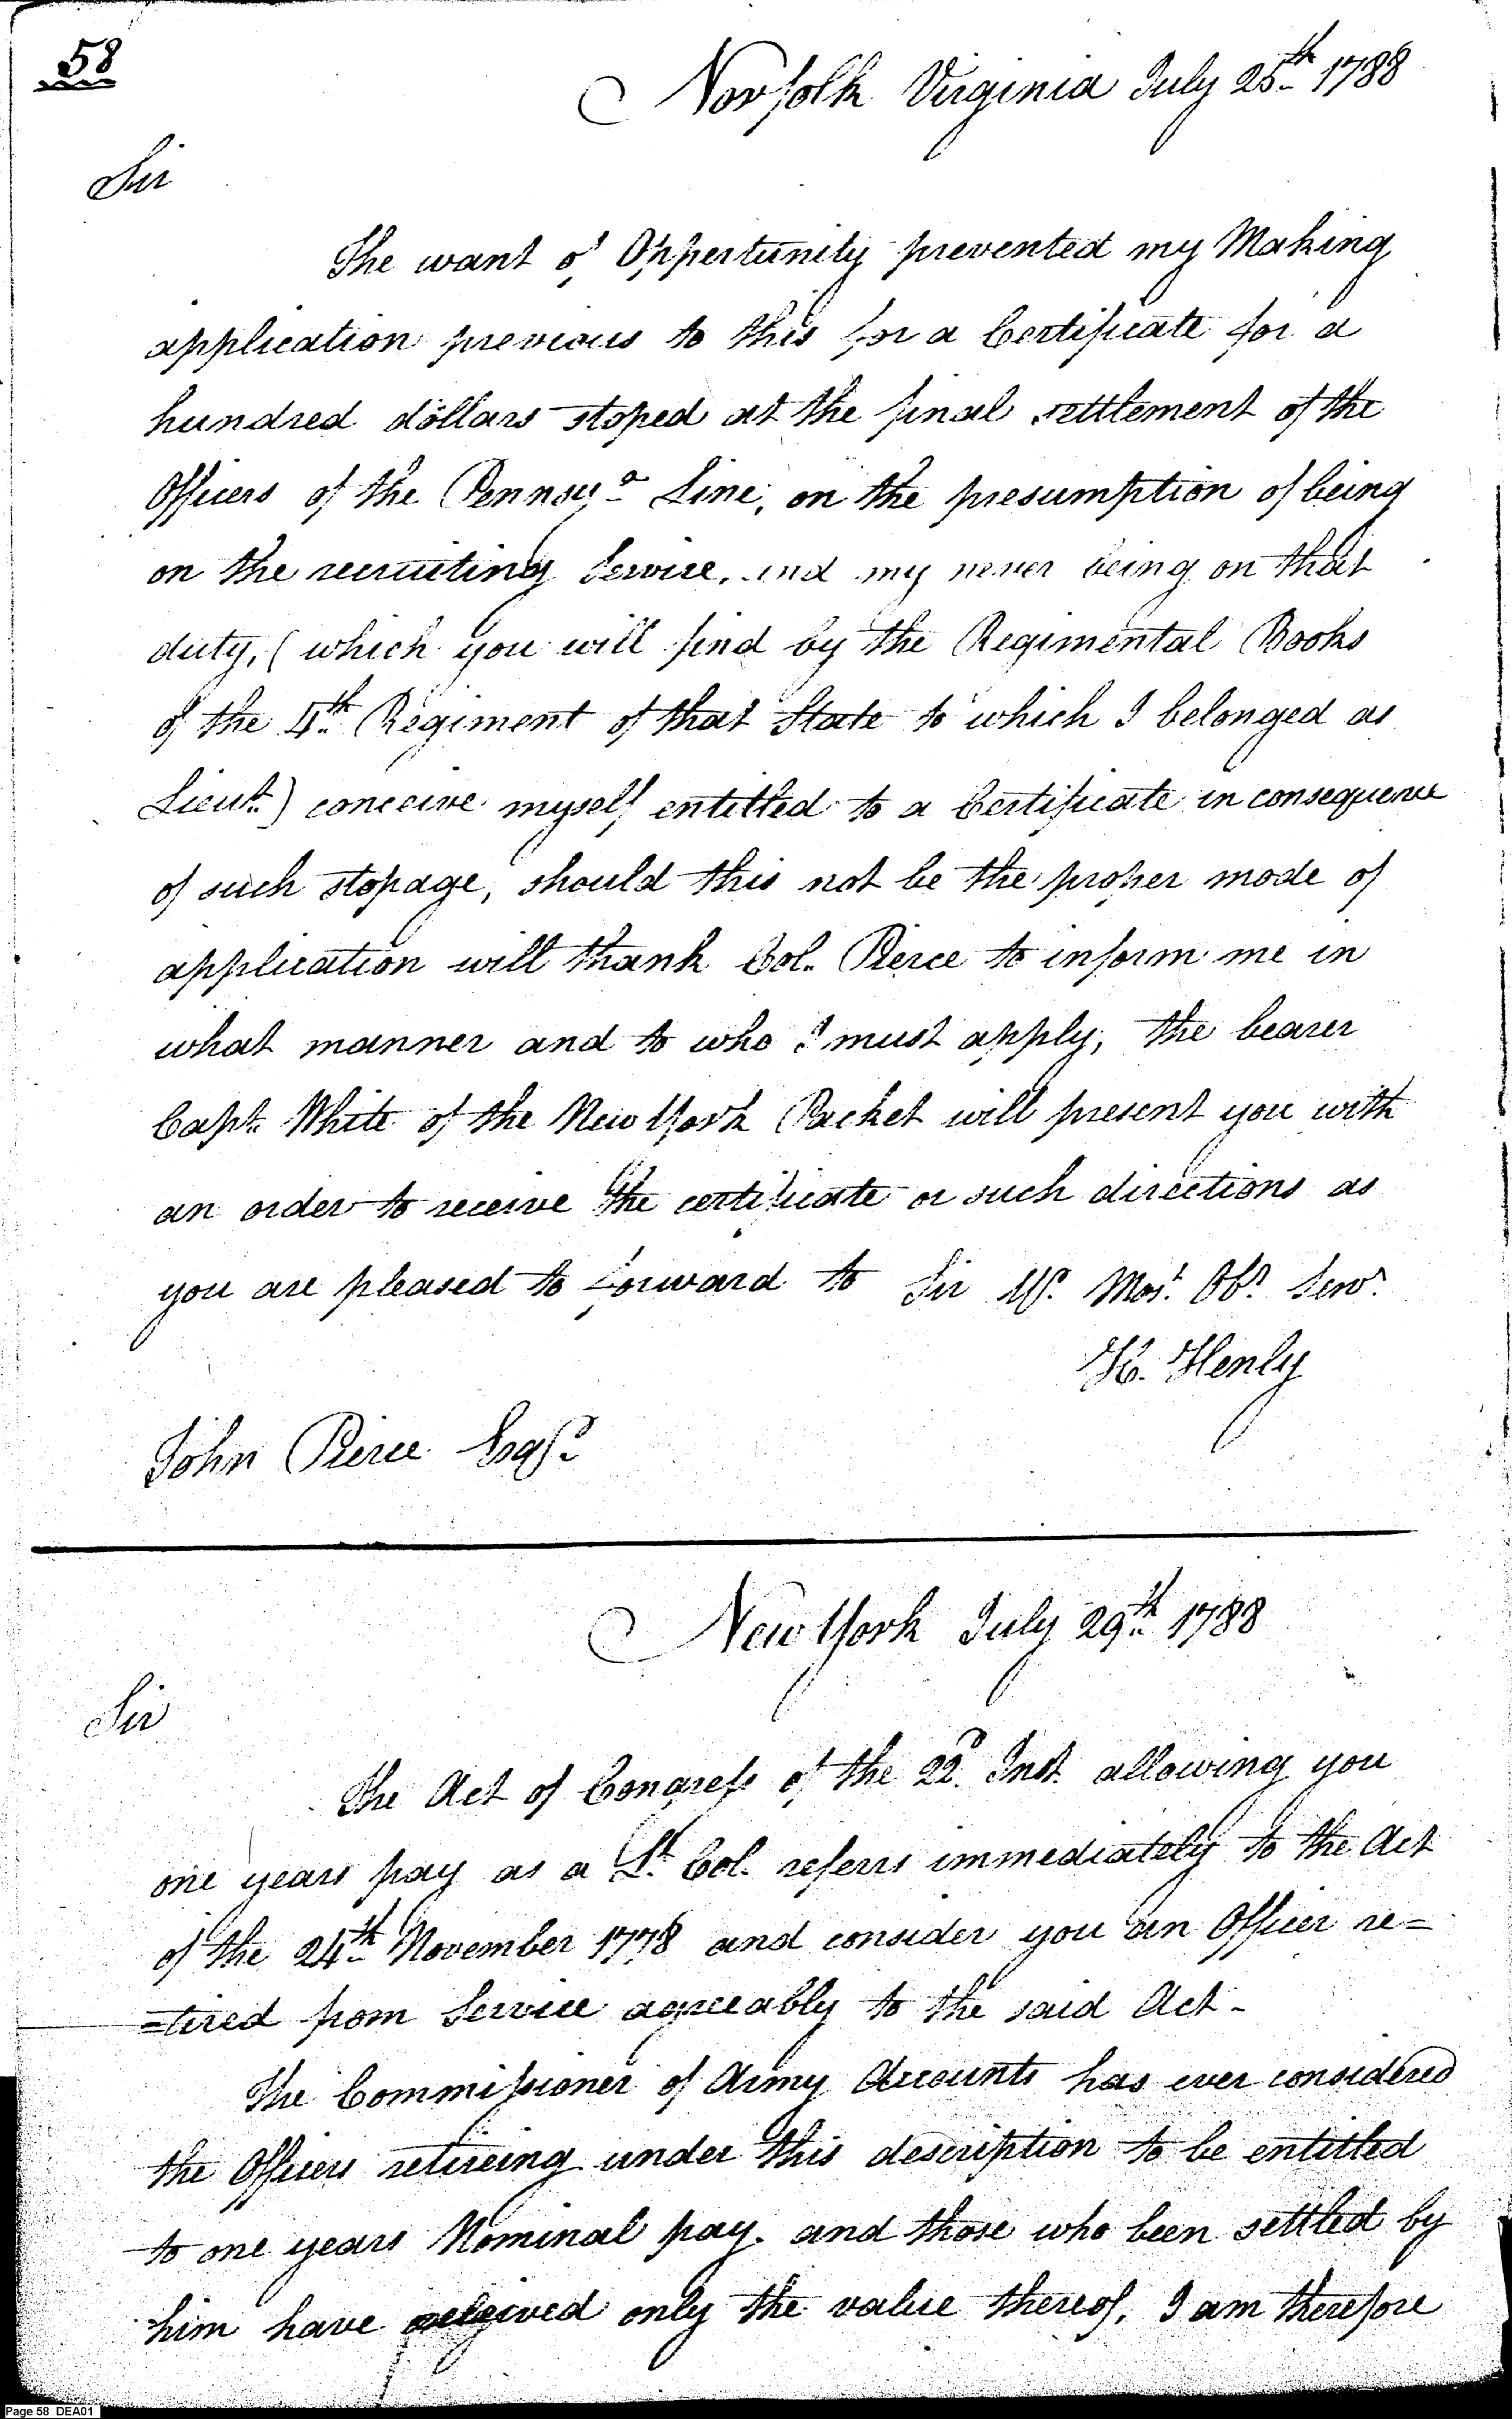 58
Norfolk Virginia July 25th 1788
Sir
The want of Oppertunity prevented my Making
application previous to this for a Certificate for a
hundred dollars stoped at the final settlement of the
Officers of the Pennsya Line, on the presumption of being
on the recruiting Service, and my never being on that
duty, (which you will find by the Regimental Books
of the 4th Regiment of that State to which I belonged as
Lieut.) conceive myself entitled to a Certificate in consequence
of such stopage, should this not be the proper mode of
application will thank Col. Pierce to inform me in
what manner and to who I must apply, the bearer
Capt. White of the New York Packet will present you with
an order to receive the certificate or such directions as
you are pleased to forward to Sir Yr. Most. Obt. Serv.
H. Henly
John Pierce Esqr.
New York July 29th 1788
Sir
The Act of Congress of the 22d. Inst. allowing you
one years pay as a Lt. Col. referrs immediately to the Act
of the 24th November 1778 and consider you an Officer re=
=tired from Service agreeably to the said Act -
The Commissioner of Army Accounts has ever considered
the Officers retireing under this description to be entitled
to one years Nominal pay. and those who been settled by
him have received only the value thereof, I am therefore
Page 58 DEA01